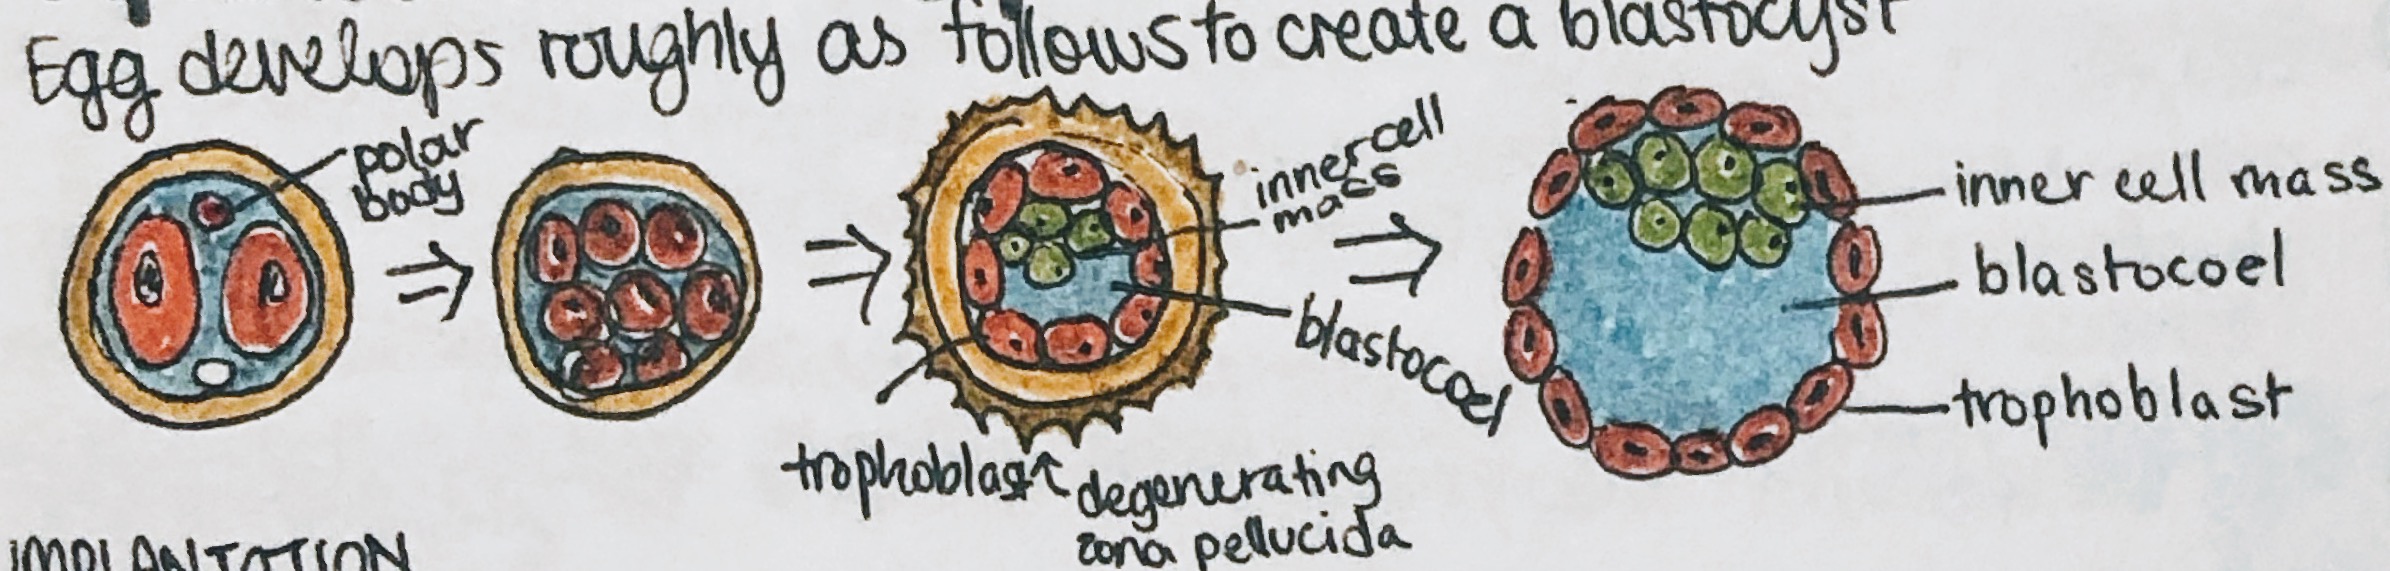 Egg develops roughly as follows to create a blastocyst
polar
body
inner cell
mass
blastocoel
trophoblast
degenerating
zona pellucida
inner cell mass
blastocoel
trophoblast
IMPLANTATION